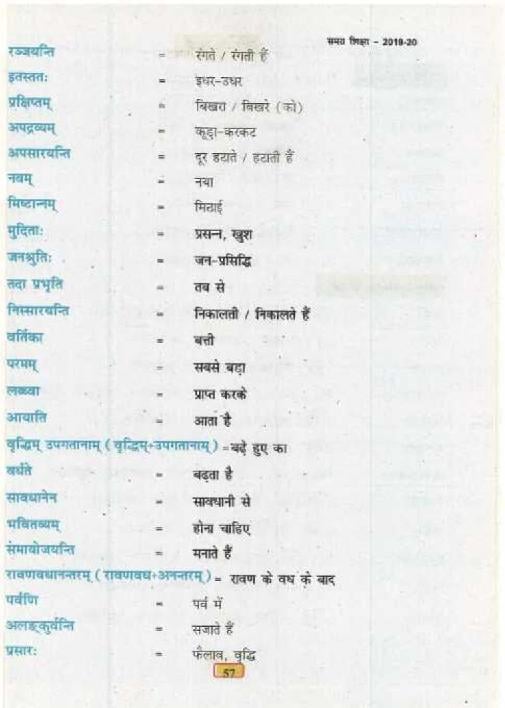 समग्र शिक्षा - 2019-20
रञ्जयन्ति = रंगते / रंगती हैं
इतस्ततः = इधर-उधर
प्रक्षिप्तम् = बिखरा / बिखरे (को)
अपद्रव्यम् = कूड़ा-करकट
अपसारयन्ति = दूर हटाते / हटाती हैं
नवम् = नया
मिष्टान्नम् = मिठाई
मुदिताः = प्रसन्न, खुश
जनश्रुतिः = जन-प्रसिद्धि
तदा प्रभृति = तब से
निस्सारयन्ति = निकालती / निकालते हैं
वर्तिका = बत्ती
परमम् = सबसे बड़ा
लब्ध्वा = प्राप्त करके
आयाति = आता है
वृद्धिम् उपगतानाम् ( वृद्धिम्+उपगतानाम् ) = बढ़े हुए का
वर्धते = बढ़ता है
सावधानेन = सावधानी से
भवितव्यम् = होना चाहिए
समायोजयन्ति = मनाते हैं
रावणवधानन्तरम् ( रावणवध+अनन्तरम् ) = रावण के वध के बाद
पर्वणि = पर्व में
अलङ्कुर्वन्ति = सजाते हैं
प्रसारः = फैलाव, वृद्धि
57